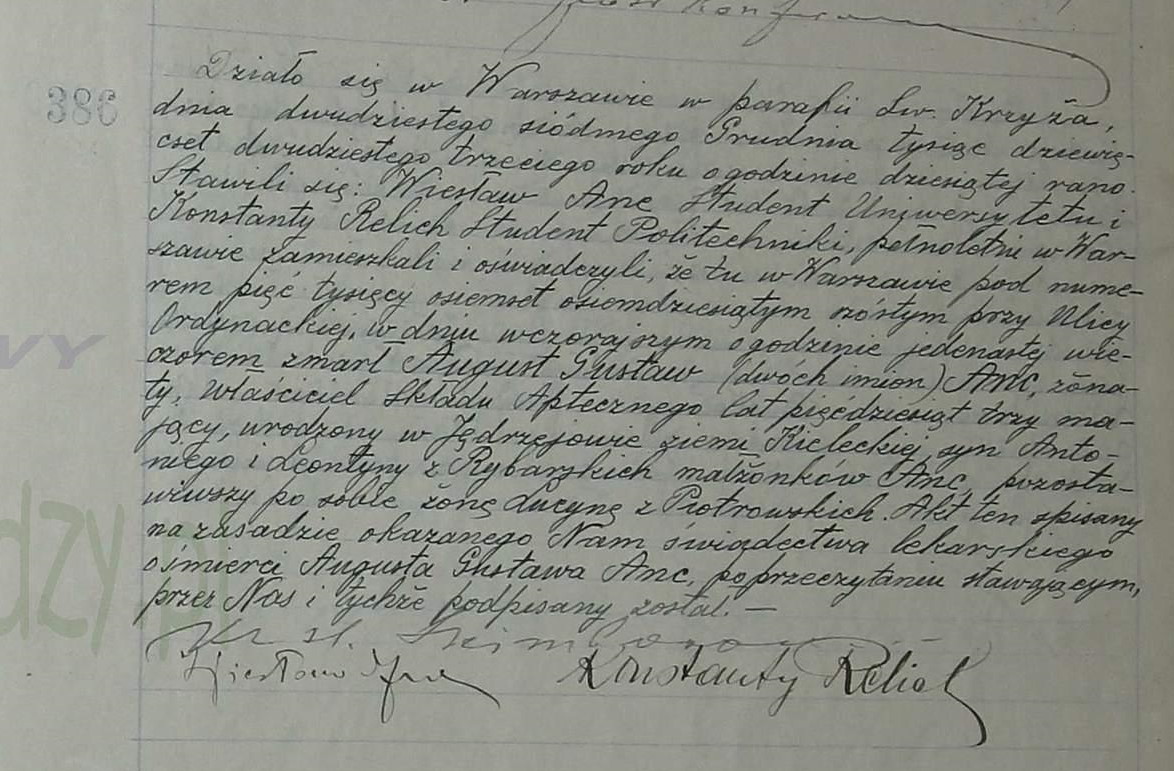 386
Działo się w Warszawie w parafii Św. Krzyża,
dnia dwudziestego siódmego Grudnia tysiąc dziewię-
cset dwudziestego trzeciego roku o godzinie dziesiątej rano.
Stawili się: Wiesław Anc Student Uniwersytetu i
Konstanty Relich Student Politechniki, pełnoletni w War-
szawie zamieszkali i oświadczyli, że tu w Warszawie pod nume-
rem pięć tysięcy osiemset osiemdziesiątym szóstym przy Ulicy
Ordynackiej, w dniu wczorajszym o godzinie jedenastej wie-
czorem zmarł August Gustaw (dwóch imion) Anc, żona-
ty, właściciel Składu Aptecznego lat pięćdziesiąt trzy ma-
jący, urodzony w Jędrzejowie ziemi Kieleckiej, syn Anto-
niego i Leontyny z Rybarskich małżonków Anc, pozosta-
wiwszy po sobie żonę Lucynę z Piotrowskich. Akt ten spisany
na zasadzie okazanego Nam świadectwa lekarskiego
o śmierci Augusta Gustawa Anc, po przeczytaniu stawającym,
przez Nas i tychże podpisany został. —
Wiesław Anc Konstanty Relich